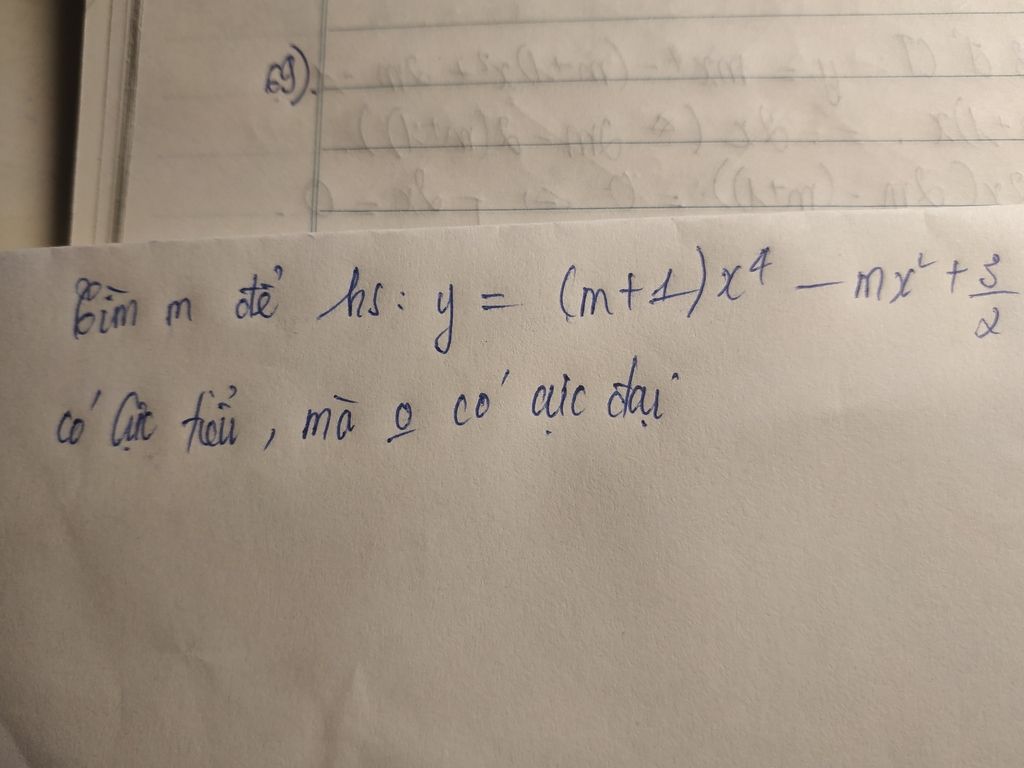 69).
Tìm m để hs: y = (m+1)x⁴ - mx² + 3/2
có cực tiểu, mà o có cực đại